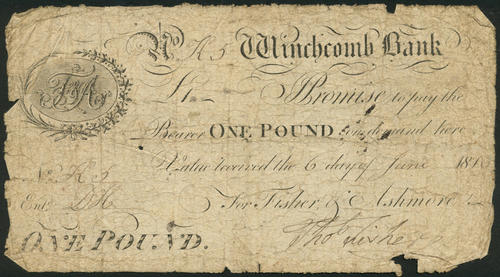 No K5 Winchcomb Bank
£1 I Promise to pay the
Bearer ONE POUND on demand here
Value received the 6 day of June 181
F&A
No K5 For Fisher & Ashmore
Entd
ONE POUND. Thos Fisher